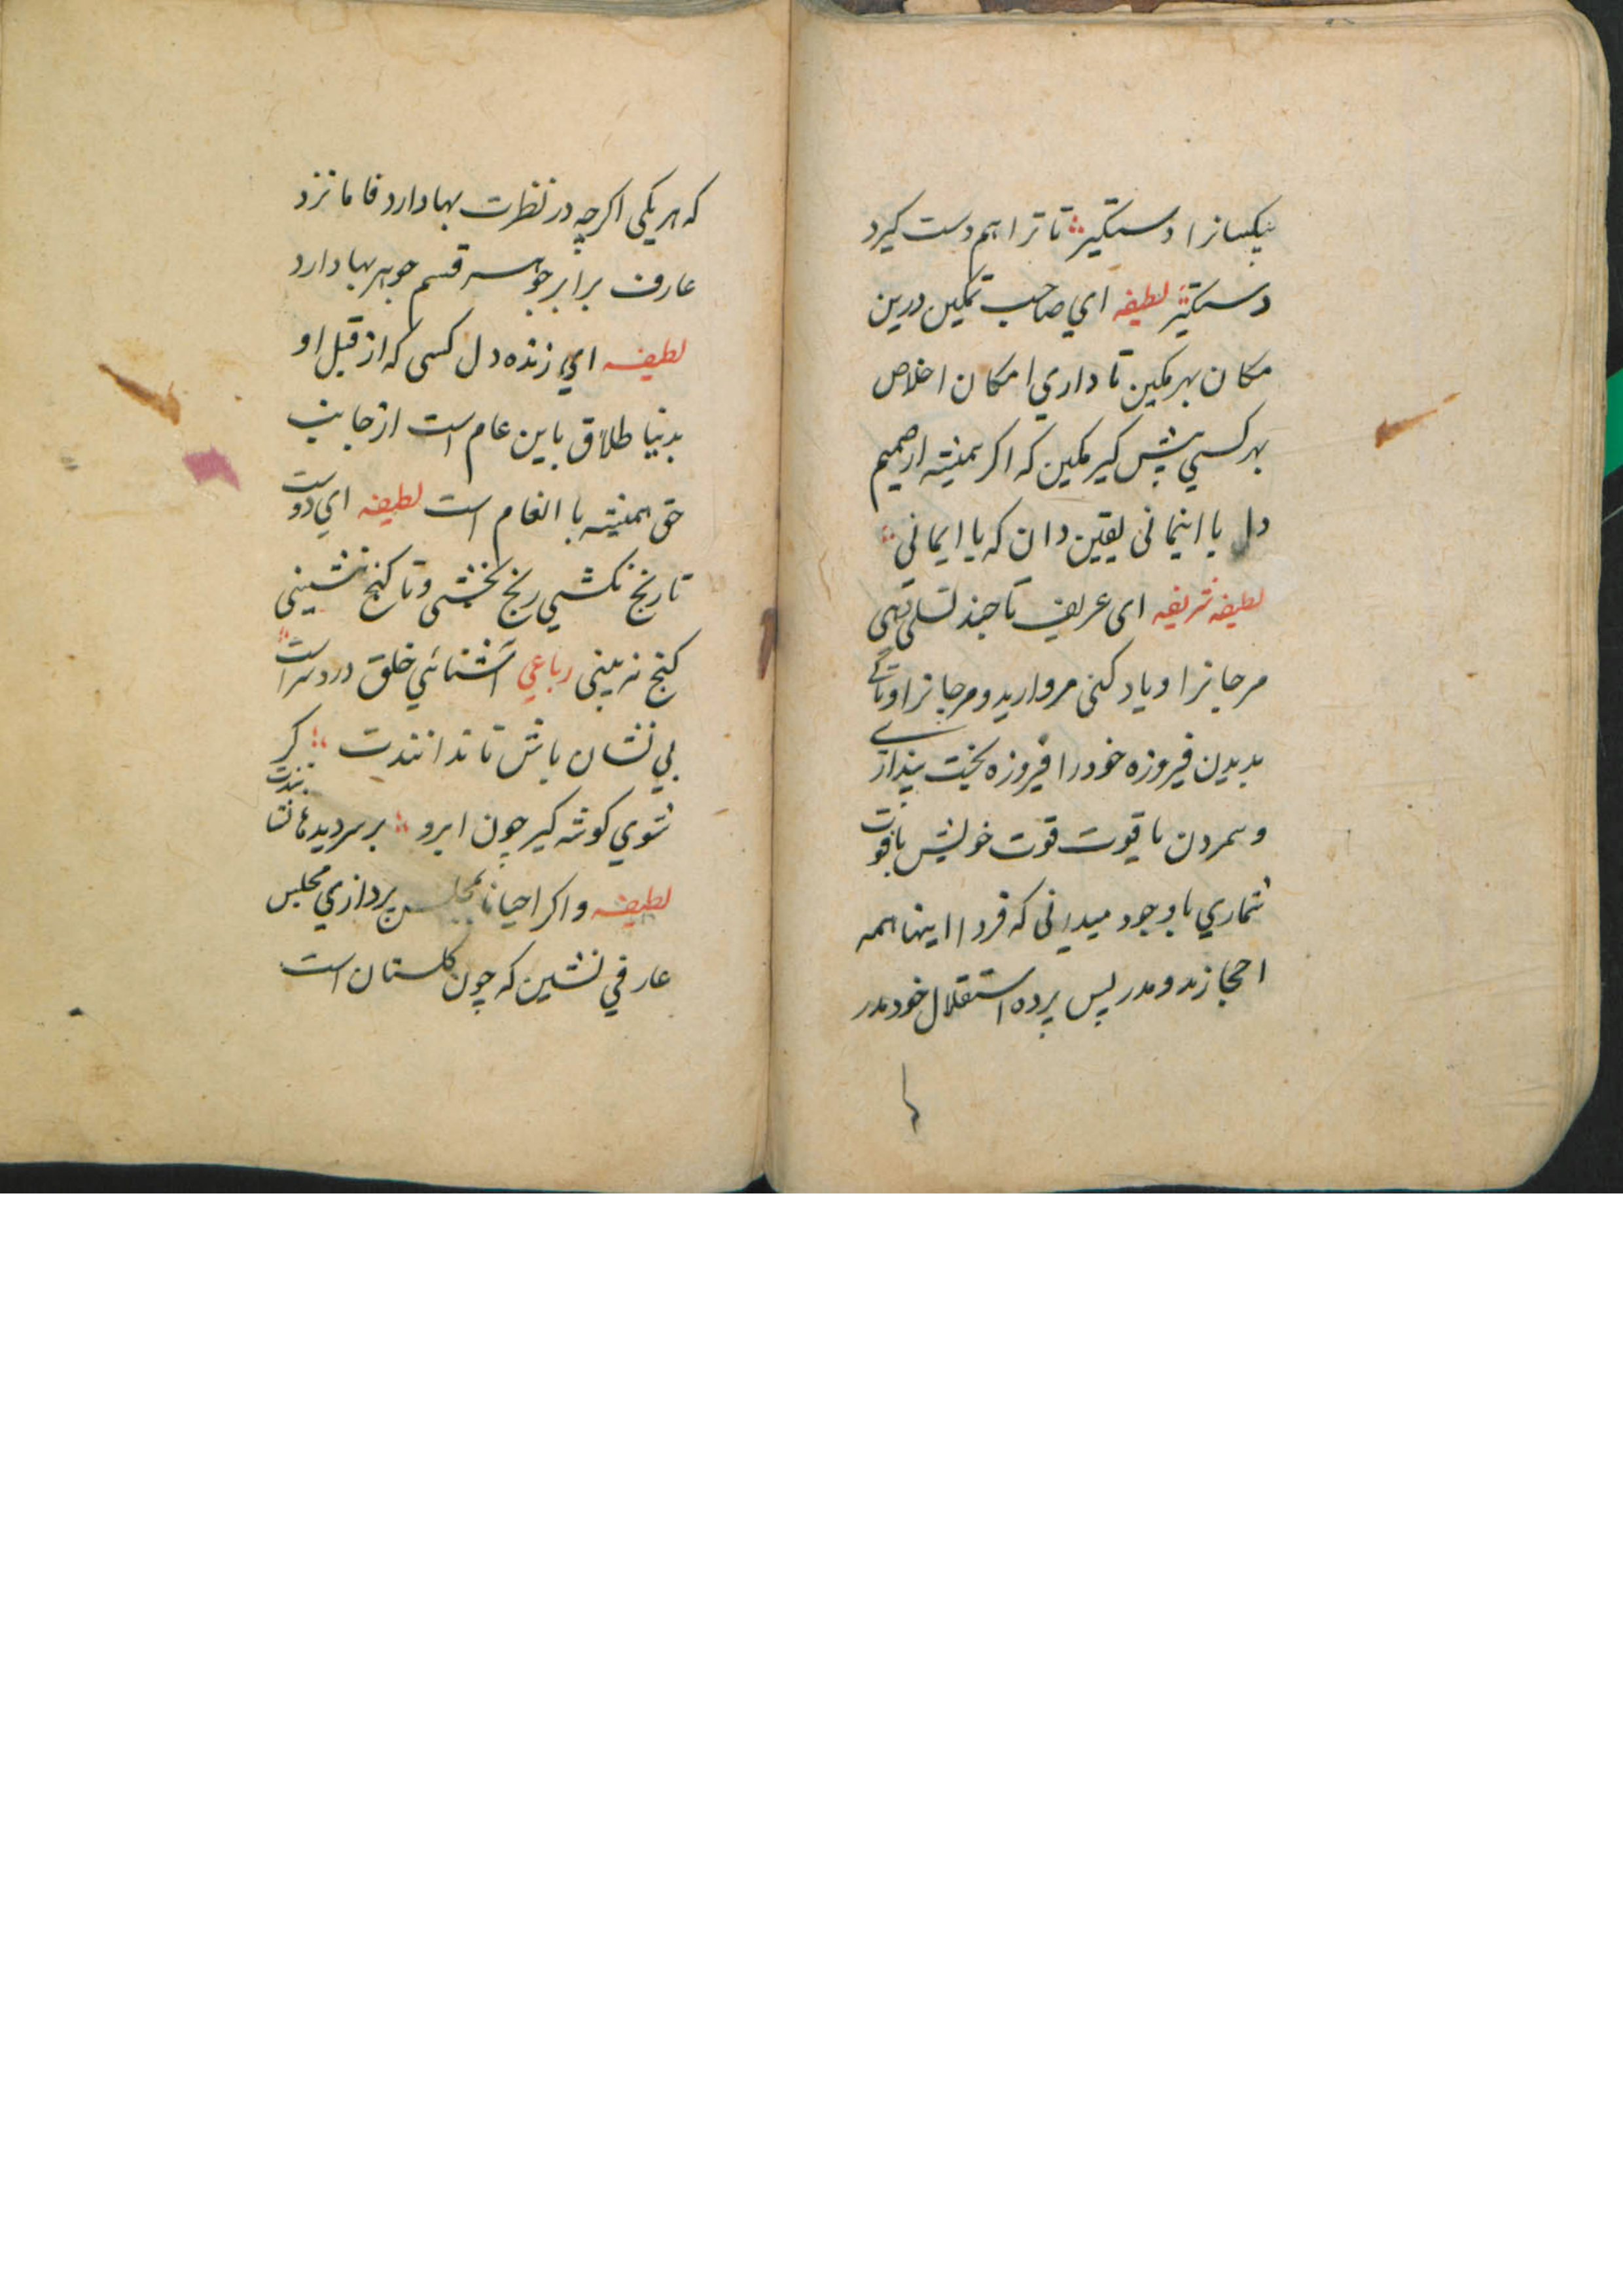 بیکسانرا دستگیر تا ترا هم دست کیرد
دستگیر لطیفه ای صاحب تمکین درین
مکان بهر مکین تا داری امکان اخلاص
بهر کسی پیش کیر مکین که اکر همیشه از صمیم
دل با اینمانی یقین دان که با ایمانی
لطیفه شریفه ای عریف تا چند تسلی دهی
مرجانرا و یاد کنی مروارید و مرجانرا و تا کی
بدیدن فیروزه خود را فیروزه بخت پنداری
و شمردن یاقوت قوت خویش یا قوت
شماری با وجود میدانی که فردا اینها همه
احجازند و مدر پس پرده استقلال خود مدر
که هر یکی اکرچه در نظرت بها دارد فاما نزد
عارف برابر جو هر قسم جوهر بها دارد
لطیفه ای زنده دل کسی که از قبل او
بدنیا طلاق باین عام است از جانب
حق همیشه با انعام است لطیفه ای دوست
تا رنج نکشی رنج نخشی و تا کنج ننشینی
کنج نه بینی رباعی آشنائی خلق درد سر است
بی نشان باش تا ندانندت کر
شوی کوشه کیر چون ابرو بر سر دیدها نشانندت
لطیفه و اکر احیانا بمجلس پردازی مجلس
عارفی نشین که چون کلستان است